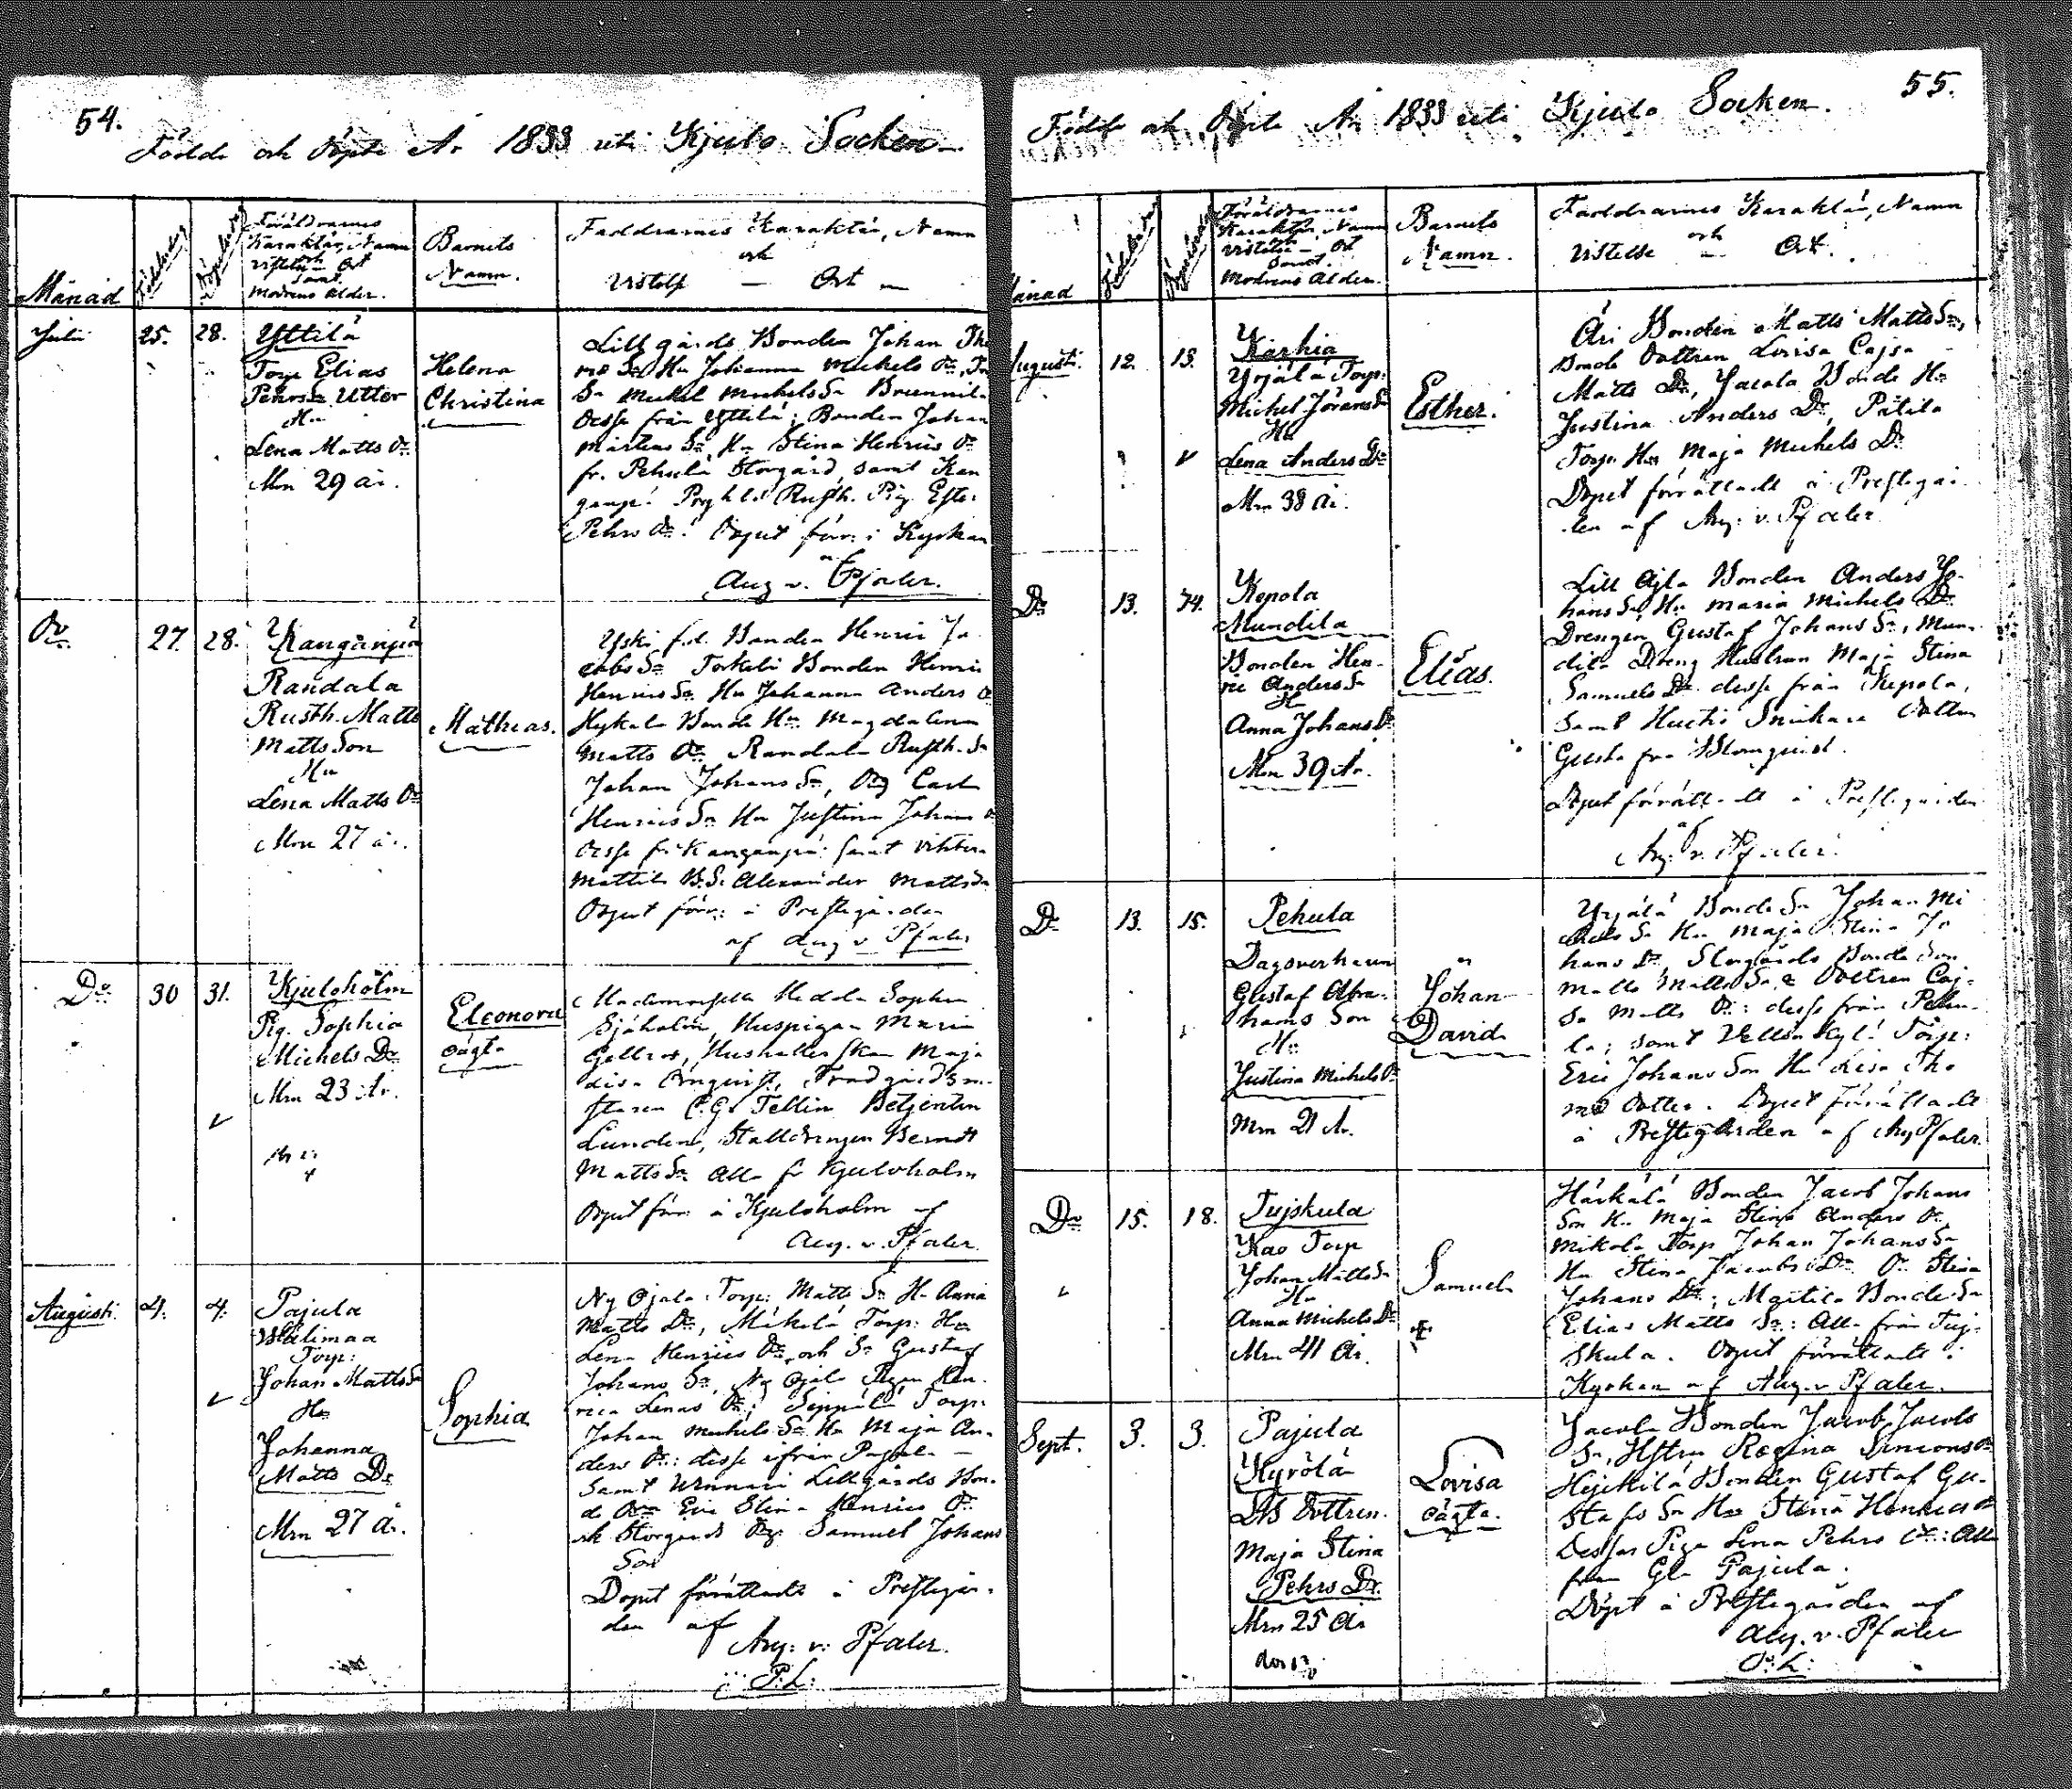 54.
Födde och Döpte År 1833 uti Kjulo Socken
Månad
Födelsedag
Döpelsedag
Föräldrarnes
Karaktär, Namn
och
Vistelse – Ort
samt
Modrens ålder.
Barnets
Namn.
Faddrarnes Karaktär, Namn
och
Vistelse – Ort –
Julii
25.
28.
Yttilä
Torp Elias
Pehrs Sn Utter
Hu
Lena Matts Dr
Mrn 29 år.
Helena
Christina
Lillgårds Bonden Johan Tho
mæ Sn Hu Johanna Michels Dr,
Sn Michel Michels Sn
desse från Yttilä; Bonden Johan
Mårtens Sn Hu Stina Henrics Dr
fr. Pehula Storgård, samt Kan
Rusth. Pig. Ester
Pehrs Dr. Döpet förr. i Kyrkan
Aug v. Pfaler.
Do
27.
28.
Kanganpää
Randala
Rusth. Matts
Matts Son
Hu
Lena Matts Dr
Mrn 27 år.
Mathias.
Bonden Henric Ja
cobs Sn Torkebi Bonden Henric
Henrics Sn Hu Johanna Anders Dr
Bonde Hu Magdalena
Matts Dr Randala Rusth. Sn
Johan Johans Sn, Drg Carl
Henrics Sn Hu Justina Johans Dr
desse fr Kanganpää: samt
Mattila B.S. Alexander Matts Sn
Döpet förr: i Prestegården
af Aug v Pfaler
Do
30
31.
Kjuloholm
Pig. Sophia
Michels Dr
Mrn 23 År.
Eleonora
oägta
Mademoiselle Hedda Sophia
Sjöholm, Huspigan Maria
Hushållerskan Maja
Trädgårdsm-
staren C.G. Tellin Betjenten
Lunden, Stalldrengen Berndt
Matts Sn Alla fr Kjuloholm
Döpet förr å Kjuloholm af
Aug. v. Pfaler.
Augusti.
4.
4.
Pajula
Wälimaa
Torp:
Johan Matts Sn
Hu
Johanna
Matts Dr
Mrn 27 år.
Sophia
Ny Ojala Torp: Matts Sn Hu Anna
Matts Dr, Mikola Torp: Hu
Lena Henrics Dr, och Sn Gustaf
Johans Sn, Ny Ojala Pigan Hen-
rica Lenas Dr; Seppälä Torp:
Johan Michels Sn Hu Maja An-
ders Dr: desse ifrån Pajula
samt Lillgårds Bon-
de Drn Eva Stina Henrics Dr
och Storgårds Drg. Samuel Johans
Son
Döpet förrättadt i Prestegår-
den af
Aug: v: Pfaler.
P.L.
55.
Födde och Döpte År 1833 uti Kjulo Socken.
Månad
Födelsedag
Döpelsedag
Föräldrarnes
Karaktär, Namn
och
Vistelse – Ort
samt
Modrens ålder.
Barnets
Namn.
Faddrarnes Karaktär, Namn
och
Vistelse – Ort.
Augusti.
12.
13.
Karhia
Yrjälä Torp:
Michel Jörans Sn
Hu
Lena Anders Dr
Mrn 38 år.
Esther.
Äri Bonden Matts Matts Sn,
Bonde Dottren Lovisa Cajsa
Matts Dr, Jacala Bonde Hu
Justina Anders Dr, Pätilä
Torp: Hu Maja Michels Dr
Döpet förrättadt i Prestegår-
den af Aug: v. Pfaler.
Do
13.
14.
Kepola
Mundila
Bonden Hen-
ric Anders Sn
Hu
Anna Johans Dr
Mrn 39 År.
Elias.
Lill Äjla Bonden Anders Jo-
hans Sn, Hu Maria Michels Dr
Drengen Gustaf Johans Sn, Mun-
dila Dreng Hustrun Maja Stina
Samuels Dr desse från Kepola,
samt Huctis Snickare Dottren
Gusta Blomqvist.
Döpet förrättadt i Prestegården
Aug: v. Pfaler.
Do
13.
15.
Pehula
Dagsverkaren
Gustaf Abra-
hams Son
Hu
Justina Michels Dr
Mrn 21 År.
Johan
David
Yrjälä Bonde Sn Johan Mi
chels Sn Hu Maja Stina Jo
hans Dr, Storgårds Bonde Son
Matts Matts Sn & Dottren Caj-
sa Matts Dr: desse från Pehu-
la; samt Torp:
Eric Johans Son Hu Lisa Tho
mæ Dotter. Döpet förrättadt
å Prestegården af Aug Pfaler.
Do
15.
18.
Tujskula
Kao Torp
Johan Matts Sn
Hu
Anna Michels Dr
Mrn 41 År.
Samuel
Härkälä Bonden Jacob Johans
Son Hu Maja Stina Anders Dr,
Mikola Torp Johan Johans Sn
Hu Stina Jacobs Dr Stina
Johans Dr; Mattila Bonde Sn
Elias Matts Sn: Alla från Tuj-
skula. Döpet förrättadt i
Kyrkan af Aug. v Pfaler.
Sept.
3.
3.
Pajula
Kyrölä
Dottren.
Maja Stina
Pehrs Dr.
Mrn 25 År
Lovisa
oägta.
Jacola Bonden Jacob Jacobs
Sn, Hstru Regina Simons Dr
Heickilä Bonden Gustaf Gu-
stafs Sn Hu Stina Henrics Dr
Dessas Piga Lena Pehrs Dr: Alla
från Gl. Pajula.
Döpt å Prestegården af
Aug. v. Pfaler
P.L.